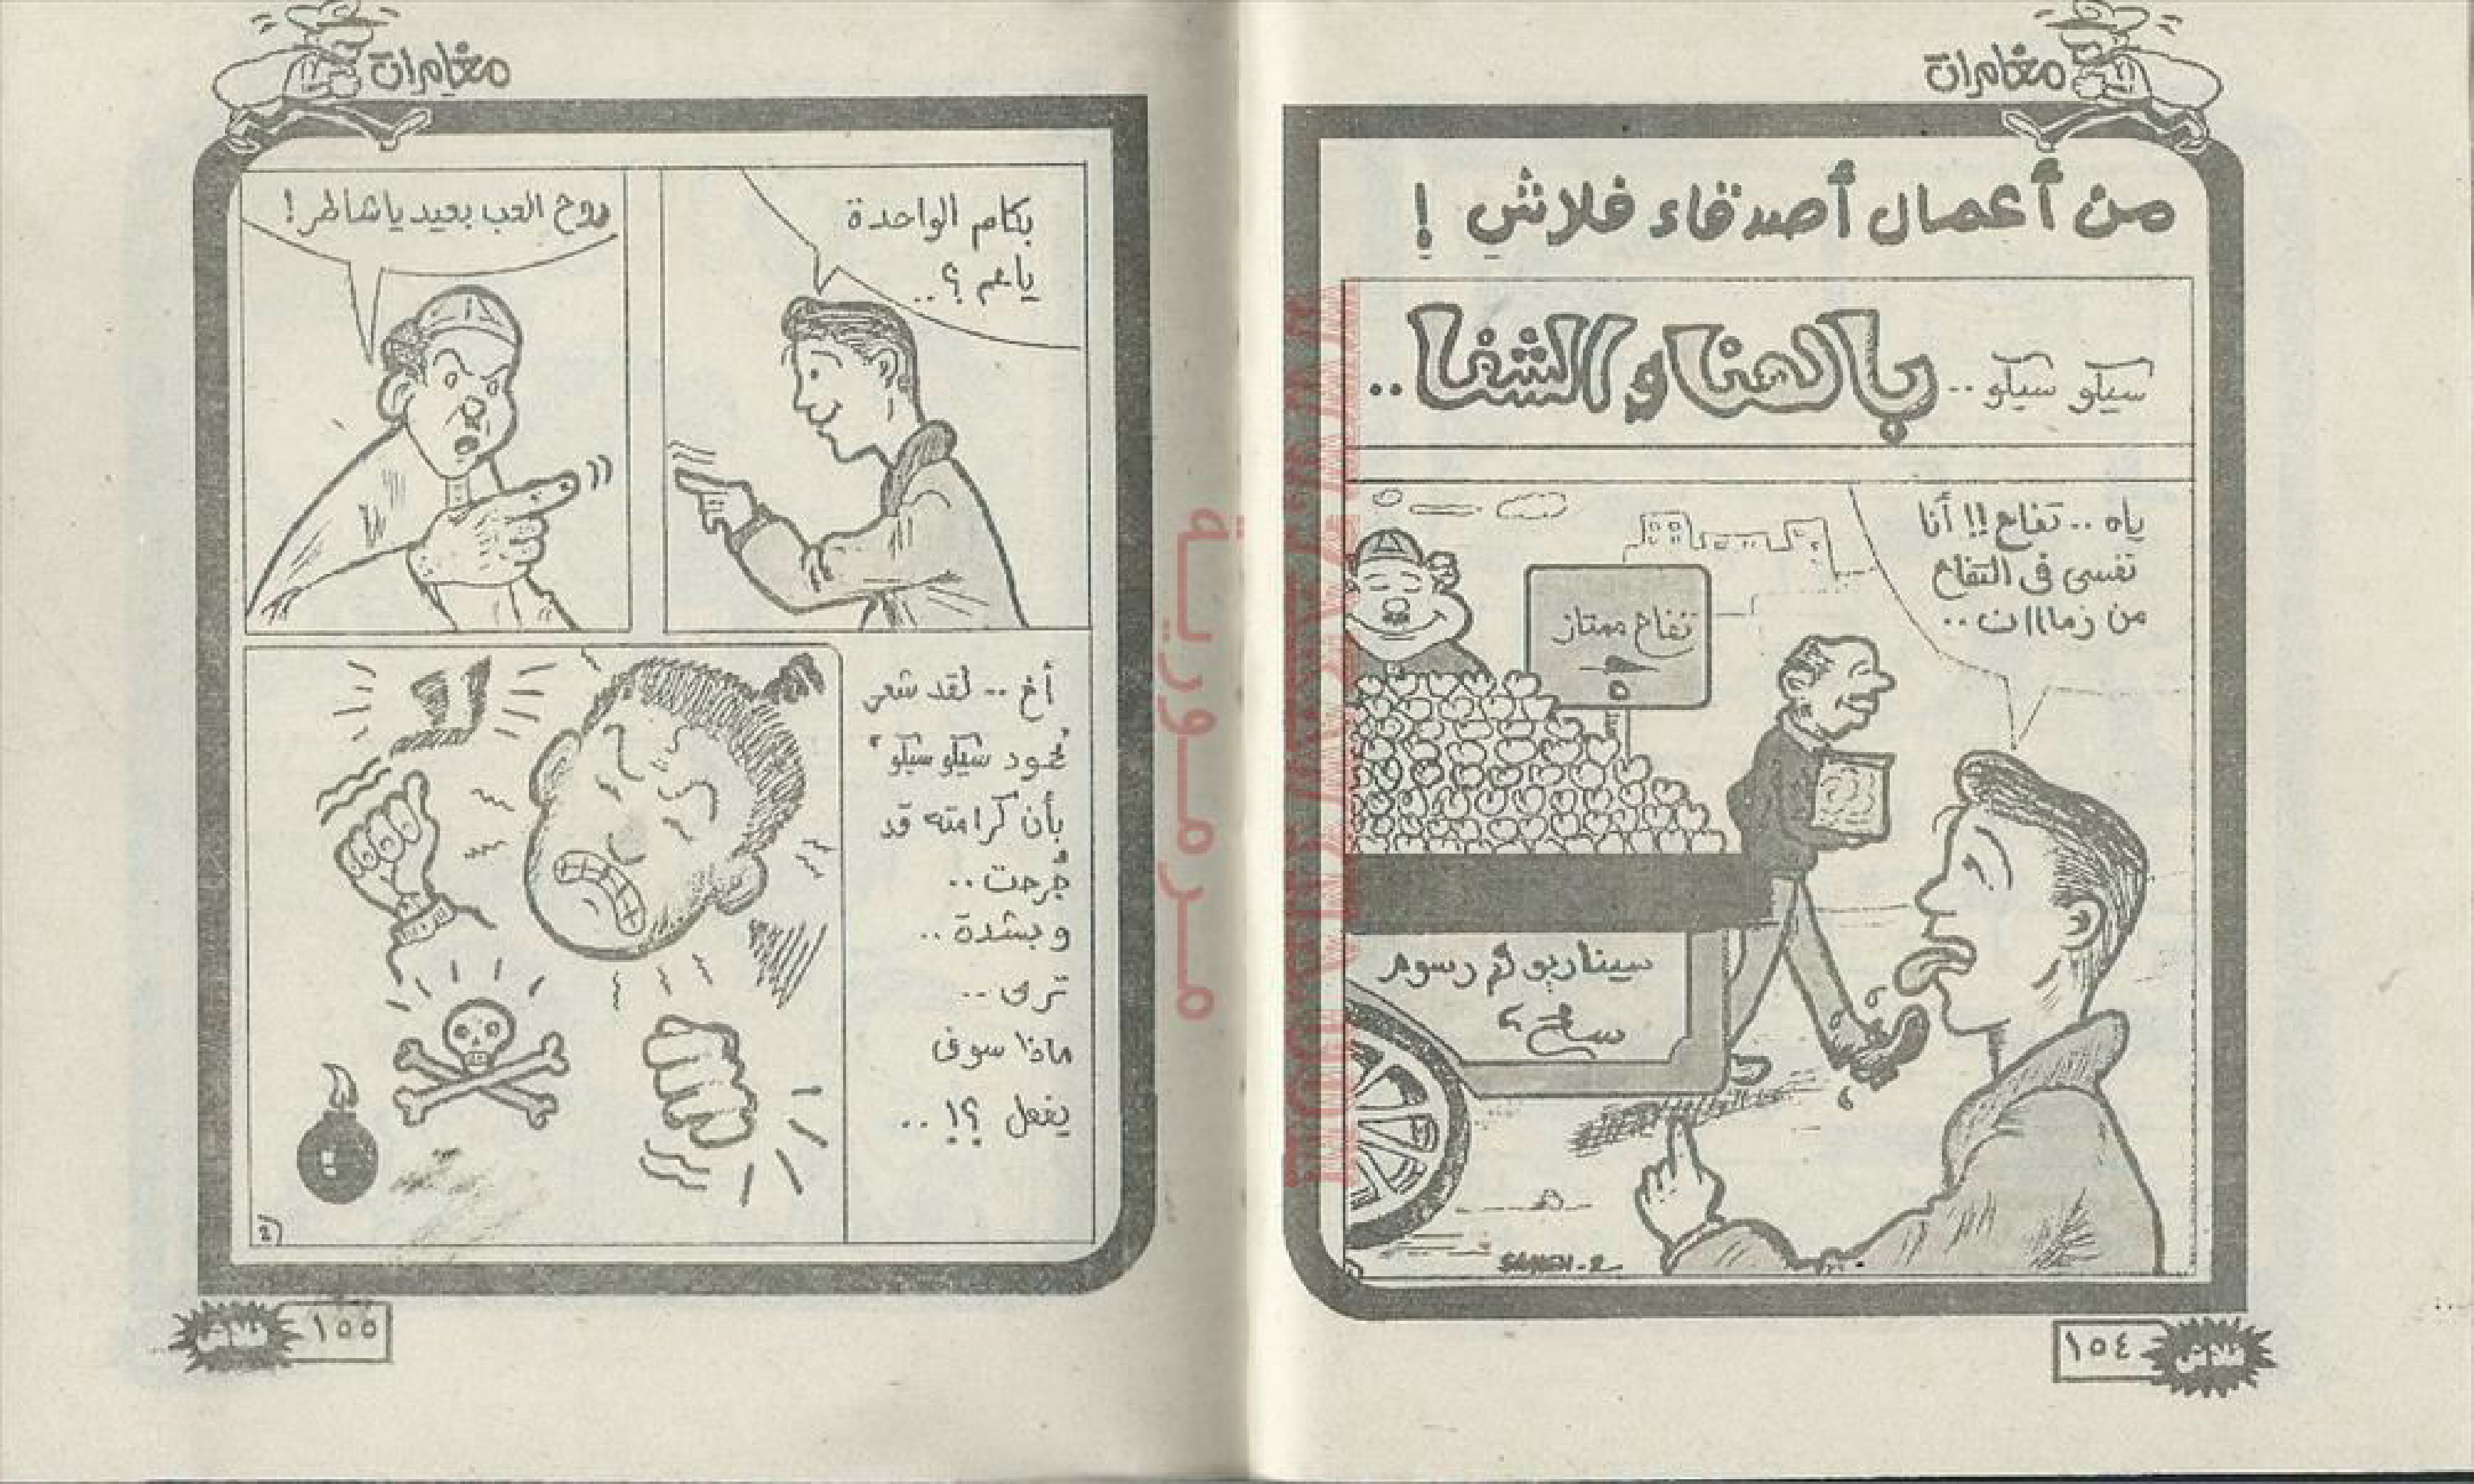 مغامرات
من أعمال أصدقاء فلاش !
سيكو سيكو .. بالهنا والشفا ..
ياه .. تفاح !! أنا
نفسى فى التفاح
من زمااان ..
تفاح ممتاز
٥
سيناريو و رسوم
سامح
SAMEH - 2
١٥٤
مغامرات
بكام الواحدة
ياعم ؟ ..
روح العب بعيد ياشاطر !
أخ .. لقد شعر
محمود "سيكو سيكو"
بأن كرامته قد
جُرحت ..
وبشدة ..
ترى ..
ماذا سوف
يفعل ؟! ..
2
١٥٥
مرمورية